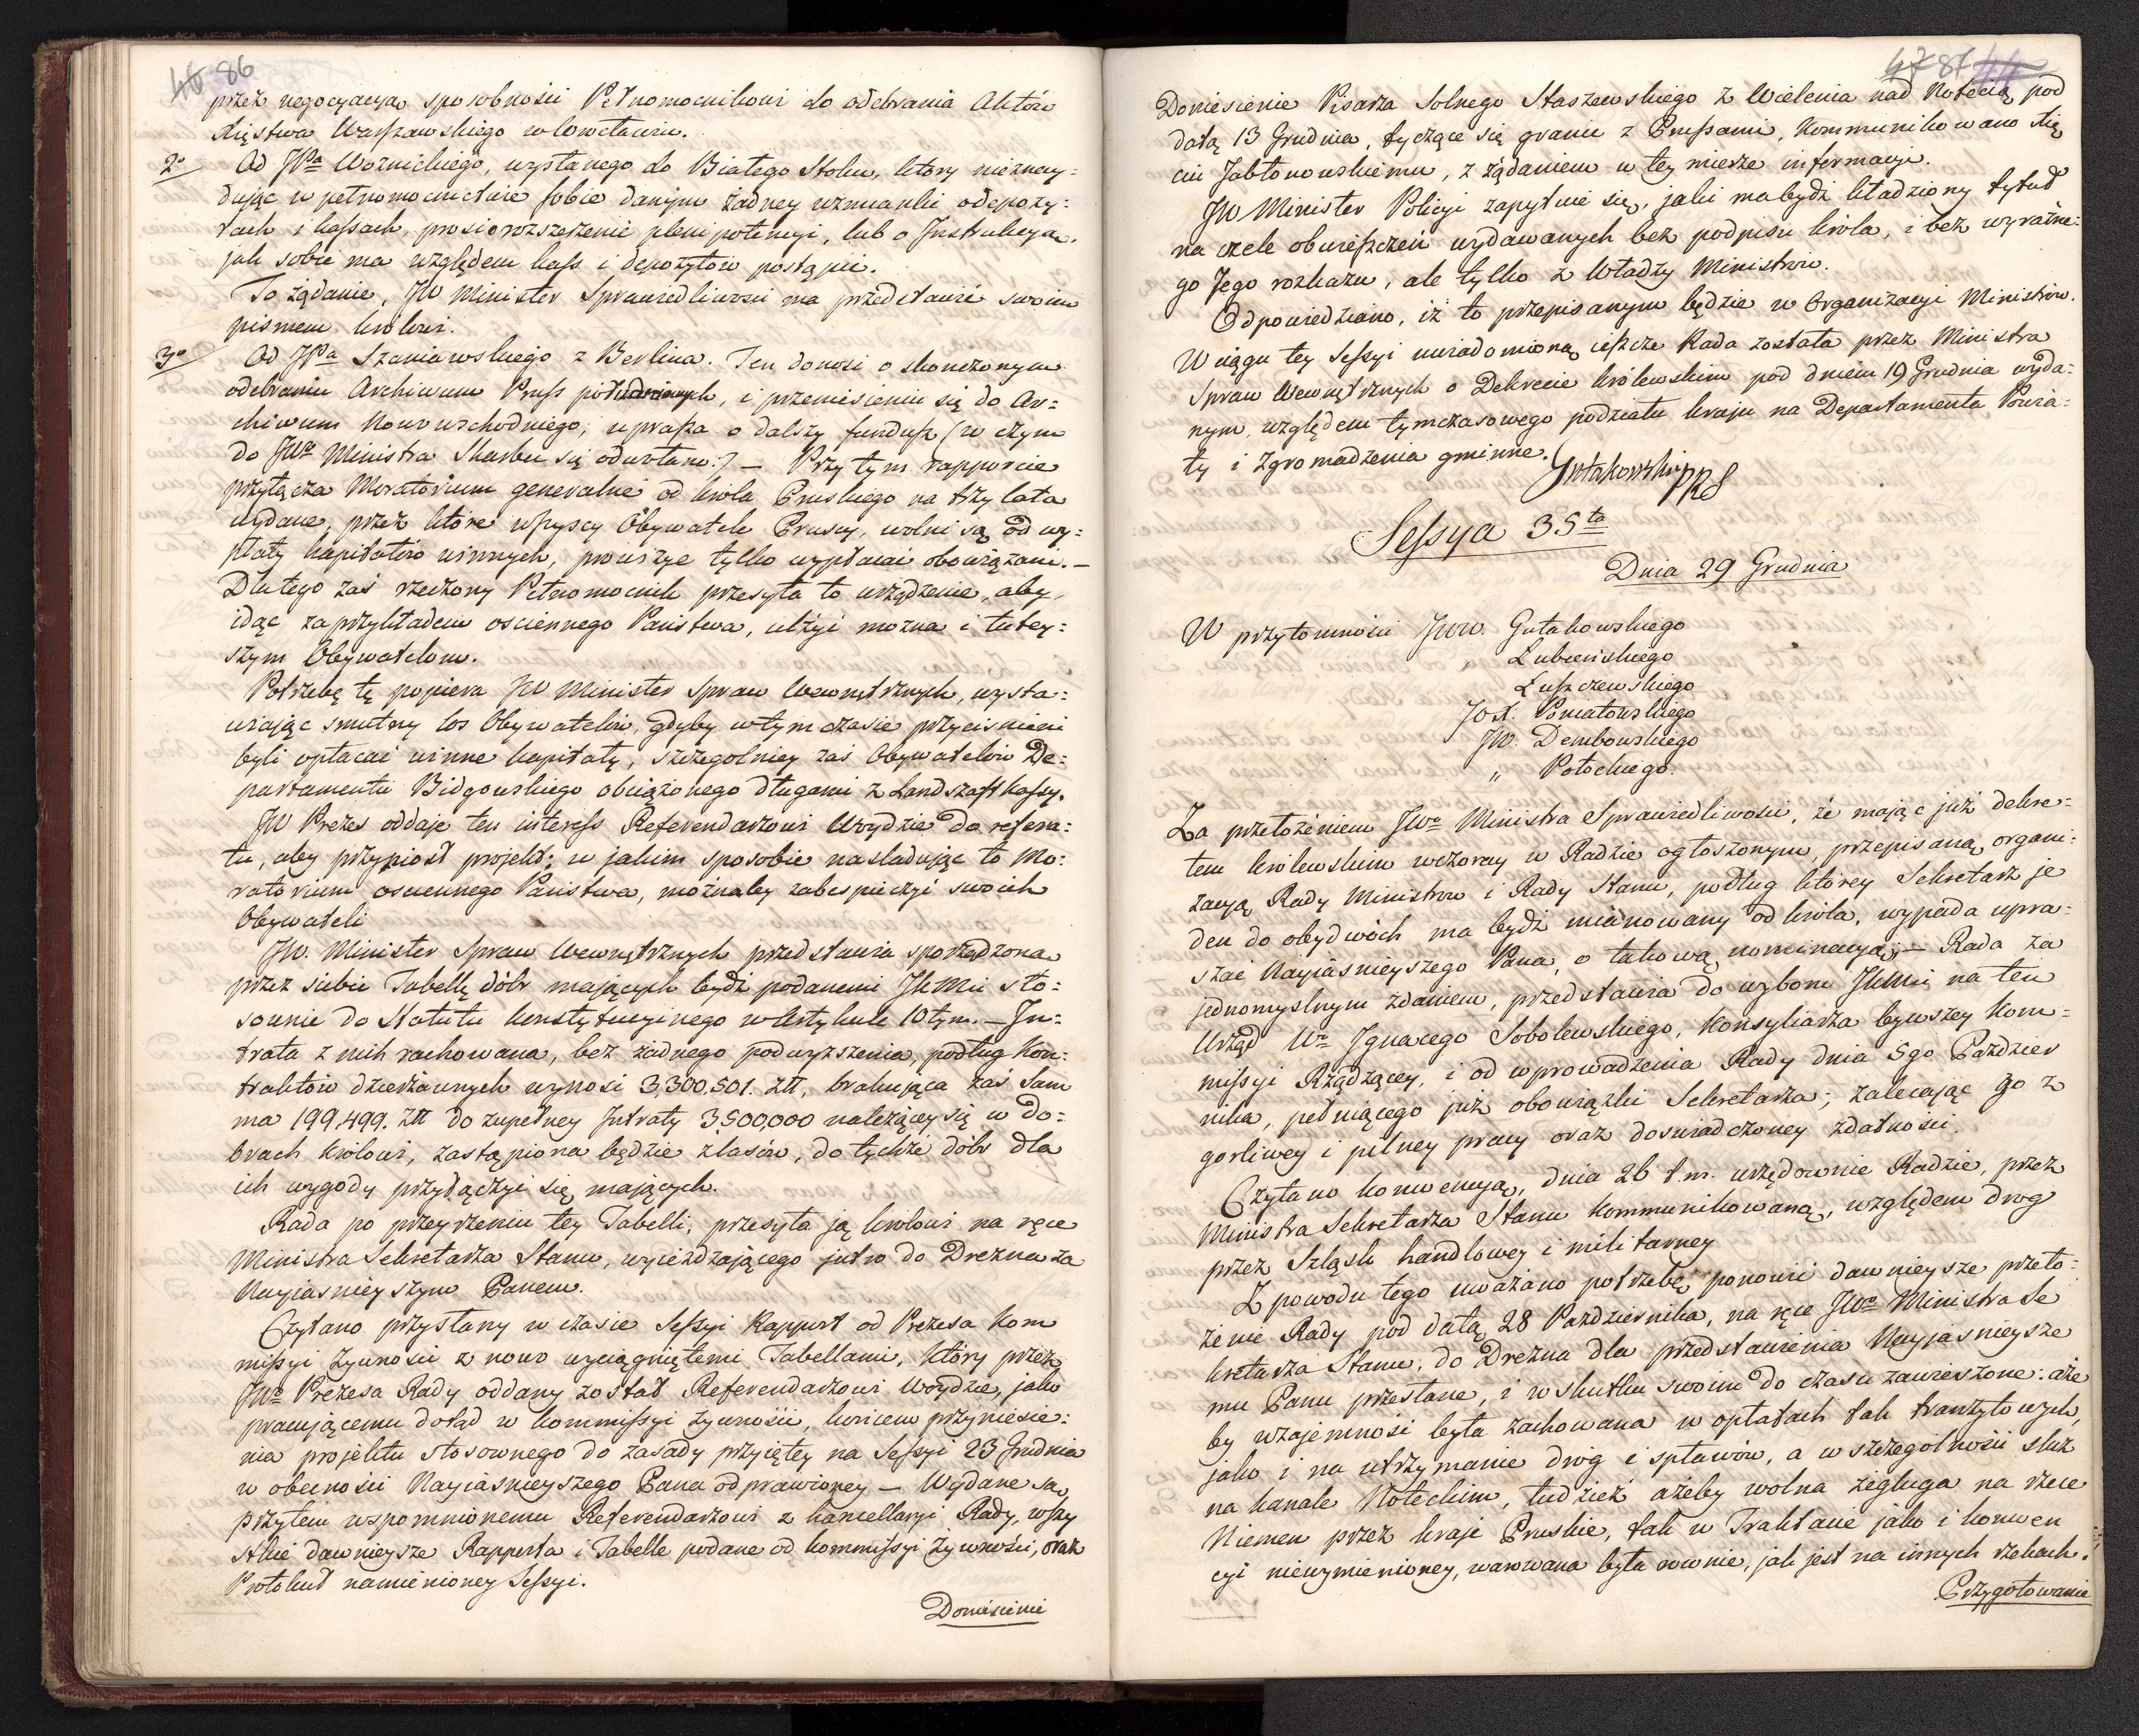 46 86
przez negocyacyą sposobności Pełnomocnikowi do odebrania Aktów
Xięstwa Warszawskiego w Łowctawin.
2º Od JPa Woznickiego, wysłanego do Białego Stoku, ktory nieznay:
dując w pełnomocnictwie sobie danym żadney wzmianki o depozy:
tach i kassach, prosi o rozszerzenie plenipotencyi, lub o Instrukcyą,
jak sobie ma względem kass i depozytów postąpić.
To żądanie, JW Minister Sprawiedliwości ma przedstawić swoim
pismem królowi.
3º Od JPa Szaniawskiego z Berlina. Ten donosi o skonczonym
odebraniu Archiwum Pruss południowych, i przeniesieniu się do Ar=
chiwum Nowowschodniego; uprasza o dalszy fundusz (w czym
do JWo Ministra Skarbu się odwołano:) — Przy tym rapporcie
przyłącza Moratorium generalne od króla Pruskiego na trzy lata
wydane, przez które wszyscy Obywatele Pruscy, wolni są od wy=
płaty kapitałów winnych, prowizye tylko wypłacać obowiązani. —
Dla tego zaś rzeczony Pełnomocnik przesyła to urządzenie, aby,
idąc za przykładem osciennego Państwa, ulżyć można i tutey:
szym Obywatelom.
Potrzebę tę popiera JW Minister Spraw Wewnętrznych, wysta:
wiając smutny los Obywatelów, gdyby w tym czasie przyciśnieni
byli opłacać winne kapitały, szczegolniey zaś Obywatelów De:
partamentu Bidgowskiego obciążonego długami z Landszaft kassy.
JW Prezes oddaje ten interess Referendarzowi Woydzie do refera:
tu, aby przyniosł projekt; w jakim sposobie nasladując to Mo:
ratorium osciennego Państwa, możnaby zabespieczyć swoich
Obywateli
JW. Minister Spraw Wewnętrznych przedstawia sporządzoną
przez siebie Tabellę dóbr mających bydź podanemi JKMci sto:
sownie do Statutu konstytucyinego w Artykule 10tym. — In:
trata z nich rachowana, bez żadnego podwyższenia, podług Kon:
traktów dzierżawnych wynosi 3,300,501. Złł, brakująca zaś Sum
ma 199,499. Złł do zupełney Intraty 3,500,000 należącey się w do:
brach królowi, zastąpiona będzie z lasów, do tychże dóbr dla
ich wygody przyłączyć się mających.
Rada po przeyrzeniu tey Tabelli, przesyła ją królowi na ręce
Ministra Sekretarza Stanu, wyieżdzającego jutro do Drezna za
Nayiasnieyszym Panem.
Czytano przysłany w czasie Sessyi Rapport od Prezesa Kom
missyi Żywności z nowo wyciągniętemi Tabellami, który przez
JWo Prezesa Rady oddany został Referendarzowi Woydzie, jako
pracującemu dotąd w kommissyi żywności, końcem przyniesie:
nia projektu stosownego do zasady przyiętey na Sessyi 23 Grudnia
w obecności Nayiasnieyszego Pana odprawioney — Wydane są
przytem wspomnionemu Referendarzowi z kancellaryi Rady, wszy
stkie dawnieysze Rapporta i Tabelle podane od kommissyi Żywności, oraz
Protokuł namienioney Sessyi.
Doniesienie
47 87 44
Doniesienie Pisarza Solnego Staszewskiego z Wielenia nad Notecią, pod
datą 13 Grudnia, tyczące się granic z Prussami, kommunikowano Xię
ciu Jabłonowskiemu, z żądaniem w tey mierze informacyi.
JW Minister Policyi zapytuie się, jaki ma bydź kładziony tytuł
na czele obwieszczeń wydawanych bez podpisu króla, i bez wyraźne:
go Jego rozkazu, ale tylko z Władzy Ministrów.
Odpowiedziano, iż to przepisanym będzie w Organizacyi Ministrów.
W ciągu tey Sessyi uwiadomioną ieszcze Rada została przez Ministra
Spraw Wewnętrznych o Dekrecie królewskim pod dniem 19 Grudnia wyda=
nym, względem tymczasowego podziału kraju na Departamenta Powia=
ty i Zgromadzenia gminne.
Gutakowski PRS
Sessya 35ta
Dnia 29 Grudnia
W przytomności JWW. Gutakowskiego
" Łubieńskiego
Łuszczewskiego
JOX. Poniatowskiego
JW. Dembowskiego
" Potockiego.
Za przełożeniem JWo Ministra Sprawiedliwości, że mając już dekre=
tem królewskim wczoray w Radzie ogłoszonym, przepisaną organi:
zacyą Rady Ministrów i Rady Stanu, podług którey Sekretarz je
den do obydwóch ma bydź mianowany od króla, wypada upra=
szać Nayiasnieyszego Pana, o takową nominacyą; — Rada za
jednomyslnym zdaniem, przedstawia do wyboru JKMci na ten
Urząd Wo Ignacego Sobolewskiego, Konsyliarza bywszey Kom=
missyi Rządzącey, i od wprowadzenia Rady dnia 5go Październ
nika, pełniącego już obowiązki Sekretarza; zalecając go z
gorliwey i pilney pracy oraz doswiadczoney zdatności.
Czytano konwencyą, dnia 26 t.m. urzędownie Radzie, przez
Ministra Sekretarza Stanu kommunikowaną, względem drog
przez Szląsk handlowey i militarney
Z powodu tego uważano potrzebę ponowić dawnieysze przeło=
żenie Rady pod datą 28 Pazdziernika, na ręce JWo Ministra Se
kretarza Stanu, do Drezna dla przedstawienia Nayjasnieysze
mu Panu przesłane, i w skutku swoim do czasu zawieszone: aże
by wzajemność była zachowana w opłatach tak tranzytowych,
jako i na utrzymanie dróg i spławów, a w szczegolności śluz
na kanale Noteckim, tudzież ażeby wolna żegluga na rzece
Niemen przez kraje Pruskie, tak w Traktacie jako i konwen
cyi niewymienioney, warowana była rownie, jak jest na innych rzekach.
Przygotowanie